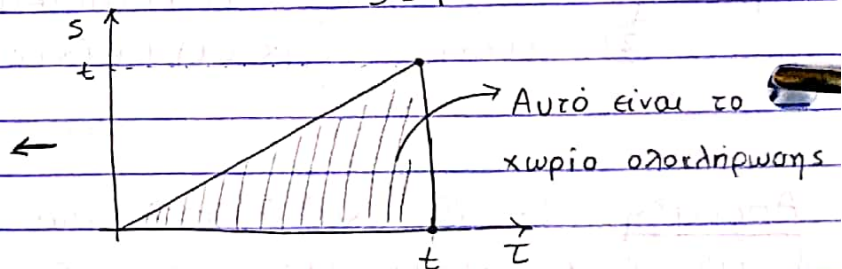 s
t
Αυτό είναι το
χωρίο ολοκλήρωσης
t τ